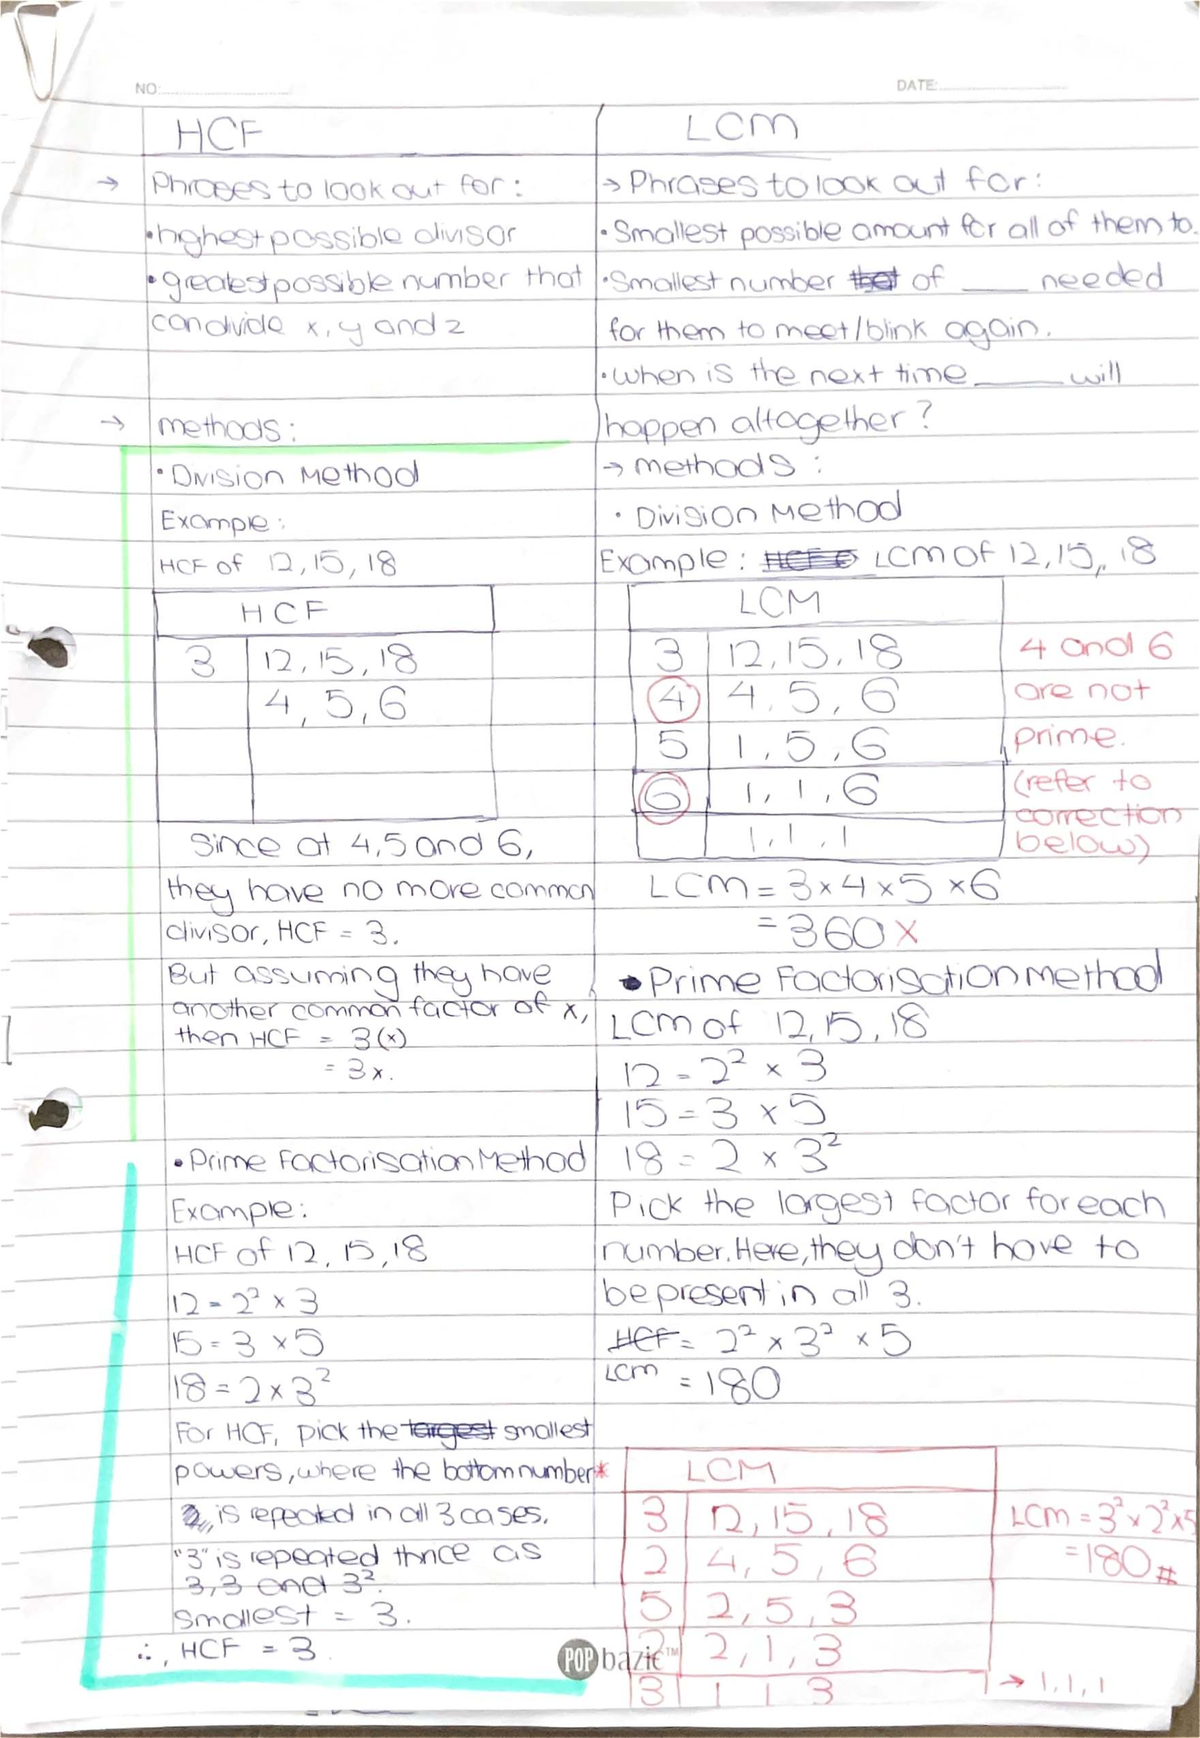 NO:
DATE:
HCF
→ Phrases to look out for:
• highest possible divisor
• greatest possible number that
can divide x, y and z
→ methods:
• Division Method
Example:
HCF of 12, 15, 18
HCF
3 12, 15, 18
4, 5, 6
Since at 4, 5 and 6,
they have no more common
divisor, HCF = 3.
But assuming they have
another common factor of x,
then HCF = 3(x)
= 3x.
• Prime Factorisation Method
Example:
HCF of 12, 15, 18
12 = 2² x 3
15 = 3 x 5
18 = 2 x 3²
For HCF, pick the largest smallest
powers, where the bottom number*
is repeated in all 3 cases.
"3" is repeated thrice as
3, 3 and 3².
Smallest = 3.
∴, HCF = 3.
LCM
→ Phrases to look out for:
• Smallest possible amount for all of them to.
• Smallest number that of ____ needed
for them to meet/blink again.
• when is the next time ____ will
happen altogether?
→ methods:
• Division Method
Example: HCF o LCM of 12, 15, 18
LCM
3 12, 15, 18
4 4, 5, 6
5 1, 5, 6
6 1, 1, 6
1, 1, 1
4 and 6
are not
prime.
(refer to
correction
below)
LCM = 3 x 4 x 5 x 6
= 360 x
• Prime Factorisation method
LCM of 12, 15, 18
12 = 2² x 3
15 = 3 x 5
18 = 2 x 3²
Pick the largest factor for each
number. Here, they don't have to
be present in all 3.
HCF = 2² x 3² x 5
LCM = 180
LCM
3 12, 15, 18
2 4, 5, 6
5 2, 5, 3
2 2, 1, 3
3 1 1 3
→ 1, 1, 1
LCM = 3² x 2² x 5
= 180 #
POP bazic™